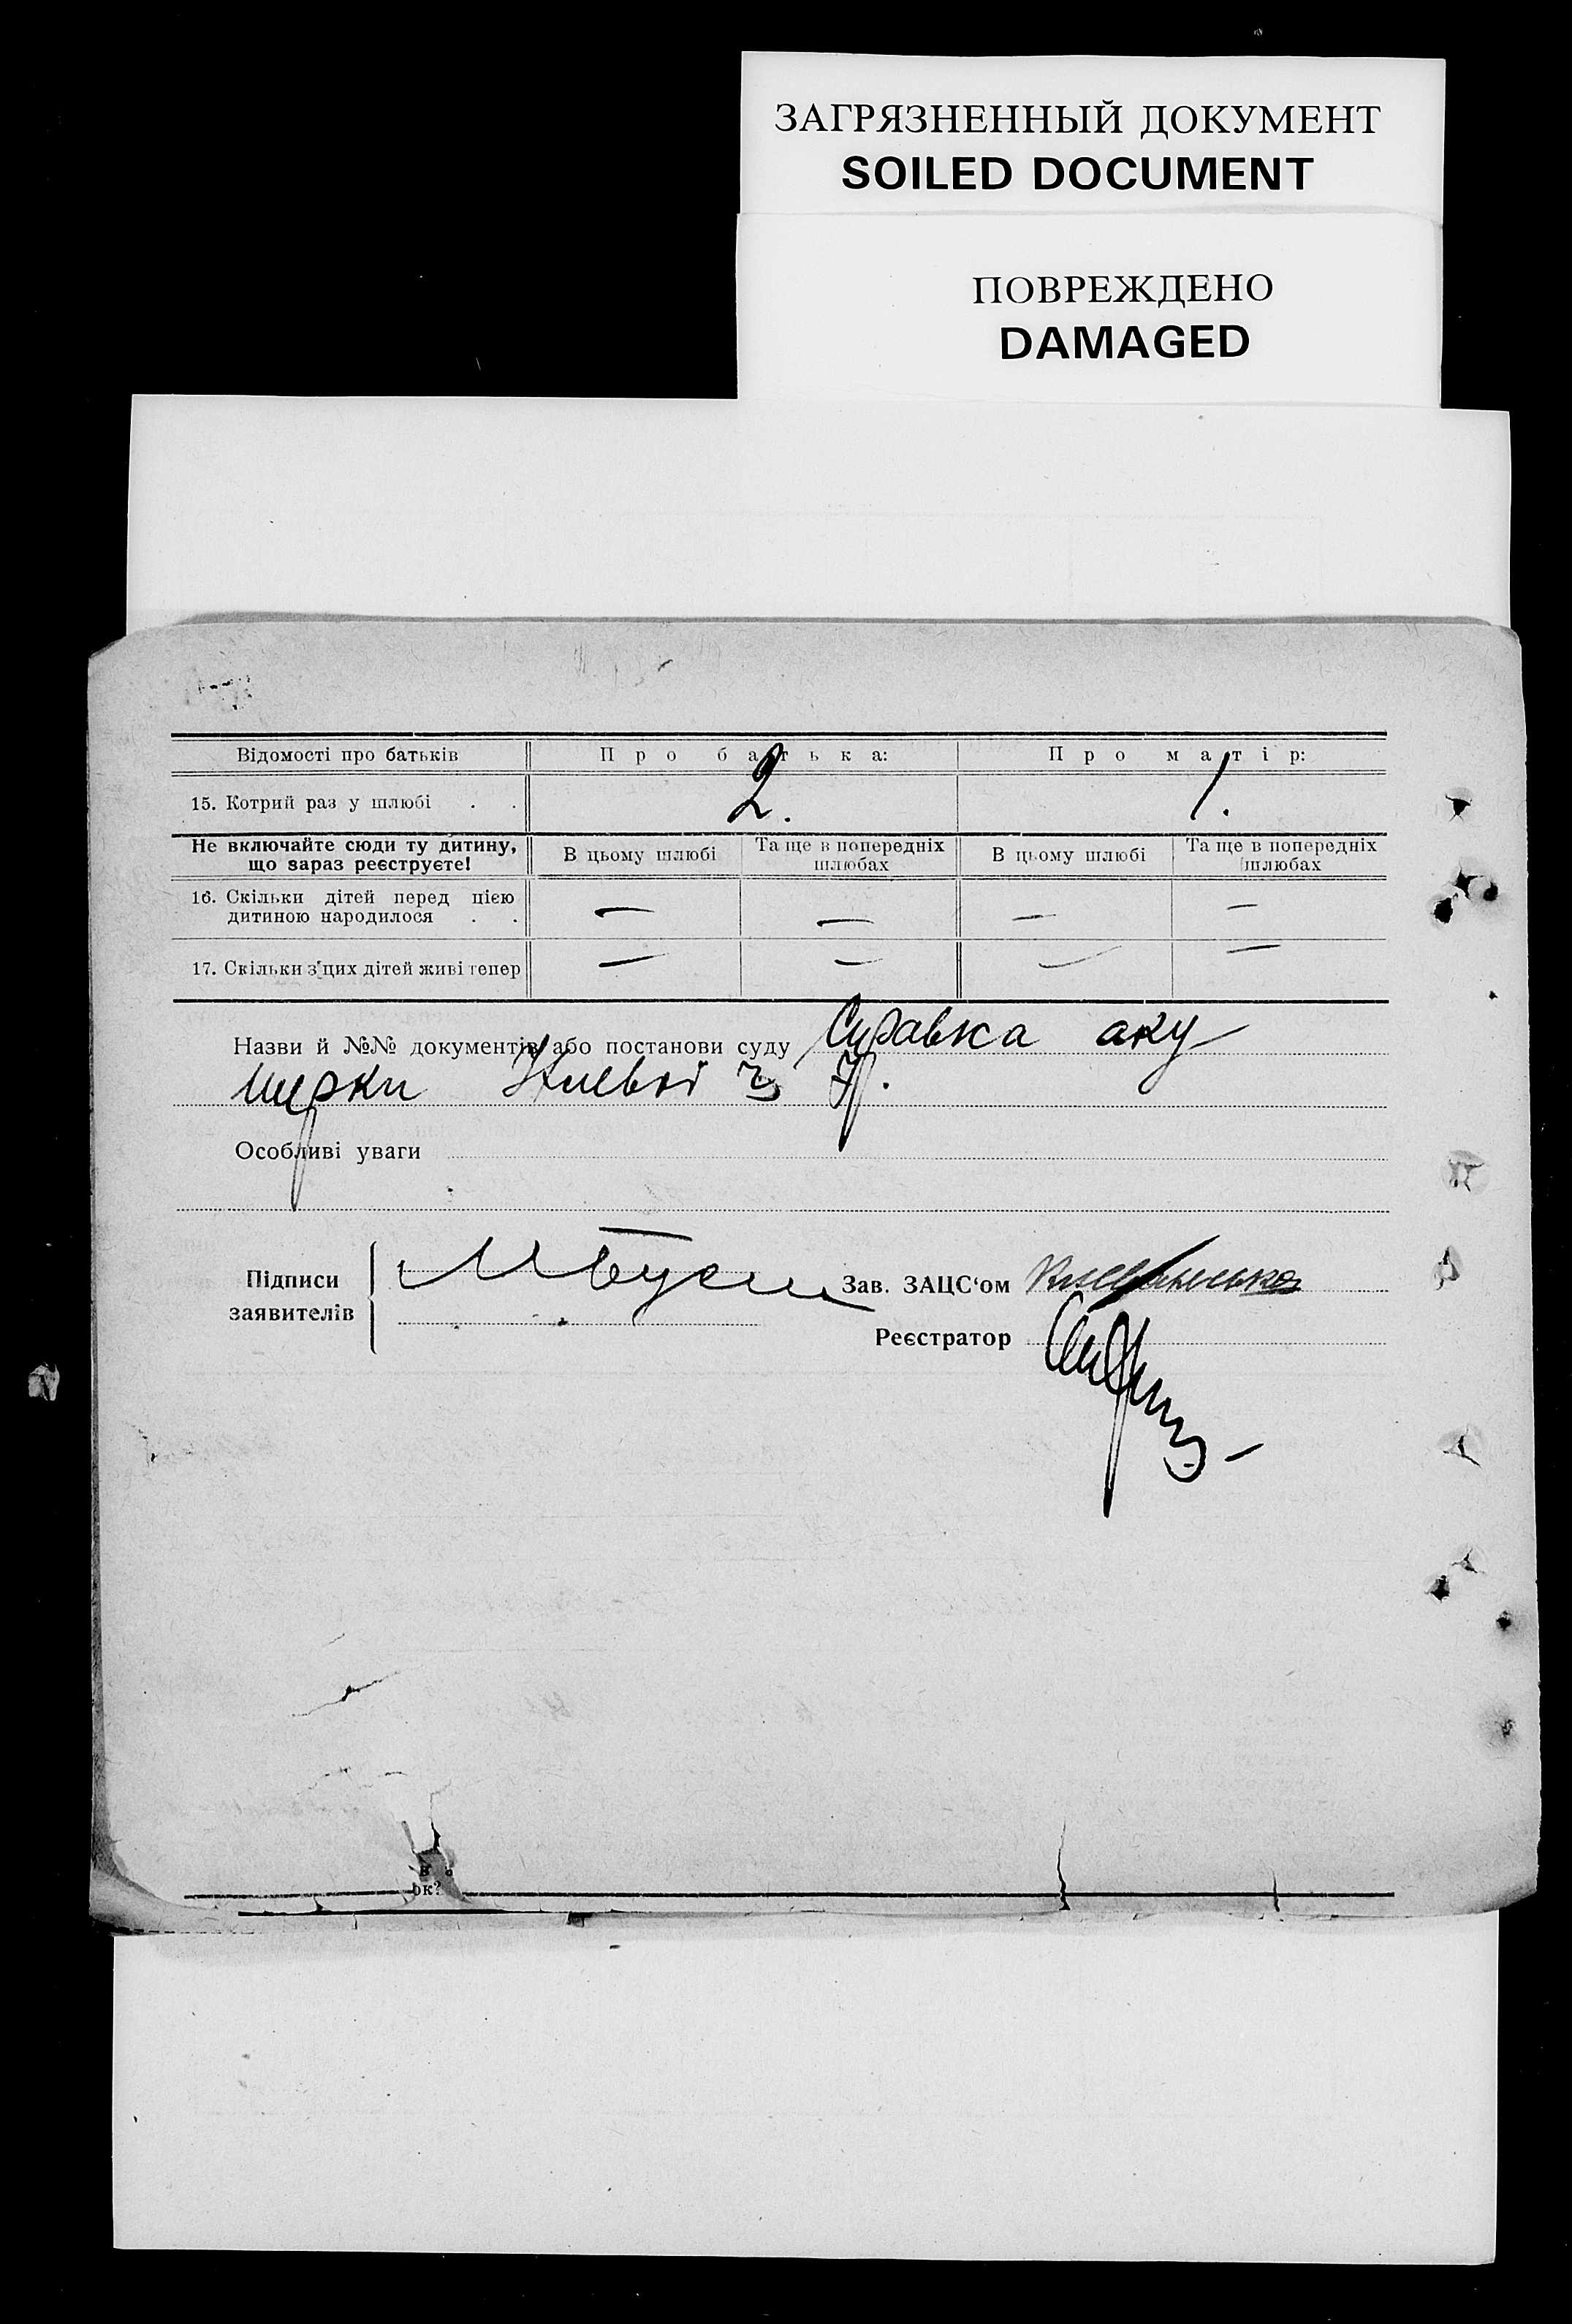 ЗАГРЯЗНЕННЫЙ ДОКУМЕНТ
SOILED DOCUMENT
ПОВРЕЖДЕНО
DAMAGED
Відомості про батьків Про батька: Про матір:
15. Котрий раз у шлюбі . . 2. 1.
Не включайте сюди ту дитину, що зараз реєструєте! В цьому шлюбі Та ще в попередніх шлюбах В цьому шлюбі Та ще в попередніх шлюбах
16. Скільки дітей перед цією
дитиною народилося . . — — — —
17. Скільки з'цих дітей живі тепер — — — —
Назви й №№ документів або постанови суду Справка аку
шерки
Особливі уваги
Підписи
заявителів
Зав. ЗАЦС‘ом
Реєстратор
ок?